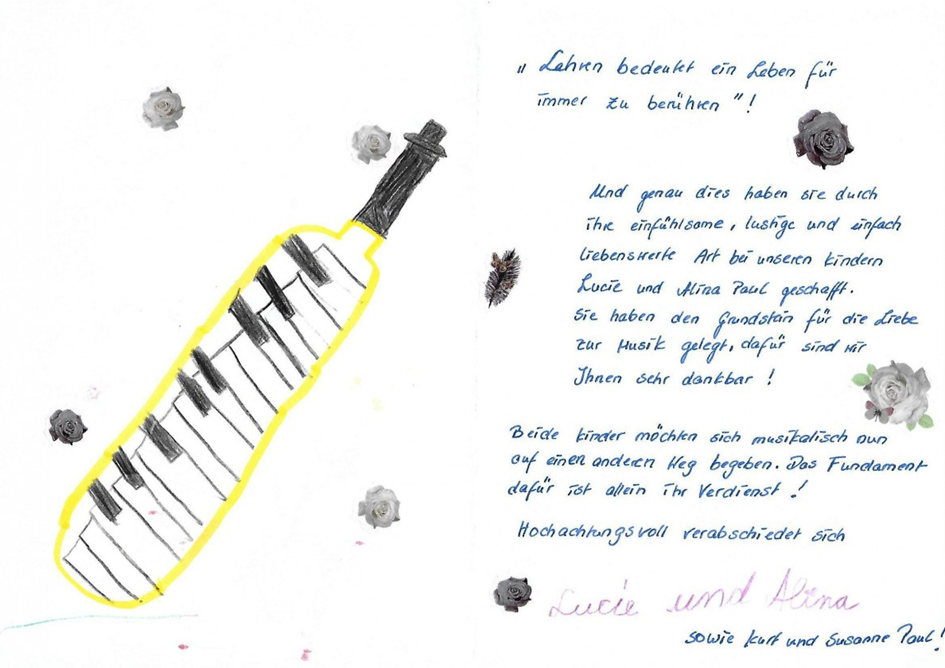 „ Lehren bedeutet ein Leben für
immer zu berühren "!
Und genau dies haben sie durch
ihre einfühlsame, lustige und einfach
liebenswerte Art bei unseren Kindern
Lucie und Alina Paul geschafft.
Sie haben den Grundstein für die Liebe
zur Musik gelegt, dafür sind wir
Ihnen sehr dankbar !
Beide Kinder möchten sich musikalisch nun
auf einen anderen Weg begeben. Das Fundament
dafür ist allein ihr Verdienst !
Hochachtungsvoll verabschiedet sich
Lucie und Alina
sowie Kurt und Susanne Paul!